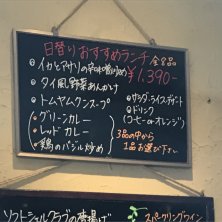 日替りおすすめランチ 全8品
・イカとアサリの辛味噌炒め ¥1,390-
・タイ風野菜あんかけ
・トムヤムクンスープ
・グリーンカレー
・レッドカレー
・鶏のバジル炒め
3品の中から
1品お選び下さい
・サラダ・ライス・デザート
・ドリンク
(コーヒーorオレンジ)
ソフトシェルクラブの唐揚げ
スパークリングワイン